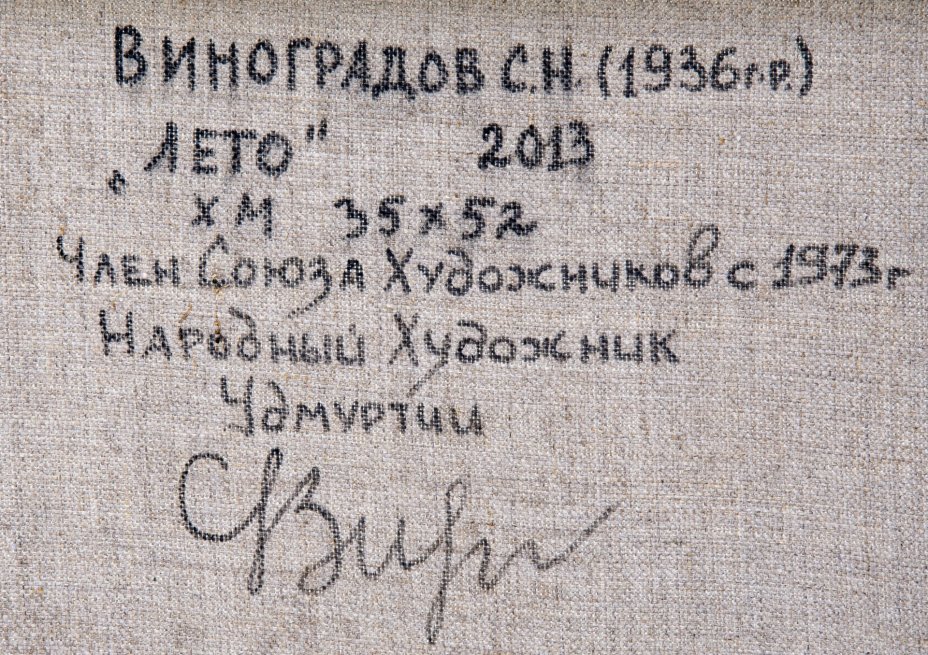 ВИНОГРАДОВ С.Н. (1936г.р.)
„ЛЕТО" 2013
ХМ 35х52
Член Союза Художников с 1973г
Народный Художник
Удмуртии